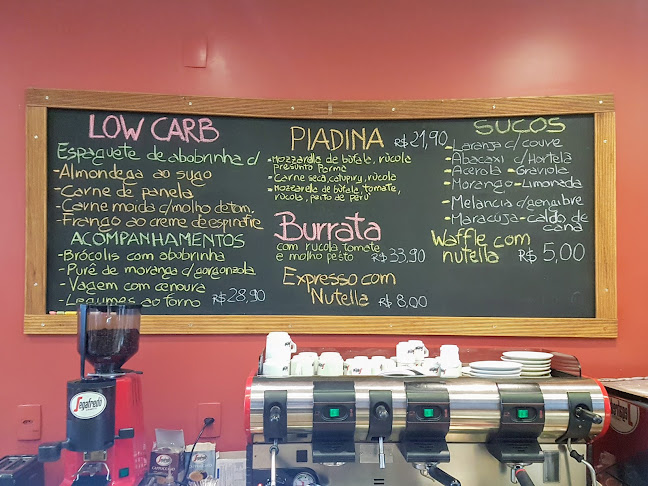 LOW CARB
Espaguete de abobrinha c/
- Almondega ao sugo
- Carne de panela
- Carne moida c/molho de tom.
- Frango ao creme de espinafre
ACOMPANHAMENTOS
- Brócolis com abobrinha
- Purê de moranga c/gorgonzola
- Vagem com cenoura
- Legumes ao forno R$ 28,90
PIADINA R$ 21,90
- Mozzarella de búfala, rúcola
presunto Parma
- Carne seca, catupiry, rúcola
- Mozzarella de búfala, tomate,
rúcola, peito de peru
Burrata
com rucola, tomate
e molho pesto R$ 33,90
Expresso com
Nutella R$ 8,00
SUCOS
- Laranja c/ couve
- Abacaxi c/ Hortelã
- Acerola - Graviola
- Morango - Limonada
- Melancia c/gengibre
- Maracujá - Caldo de
cana
Waffle com
nutella R$ 5,00
Segafredo